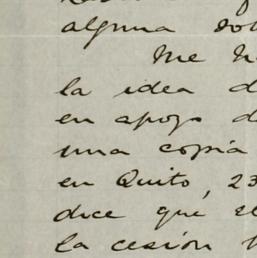 alguna
Me
la idea d
en apoyo d
una copia
en Quito, 23
dice que el
la cesión